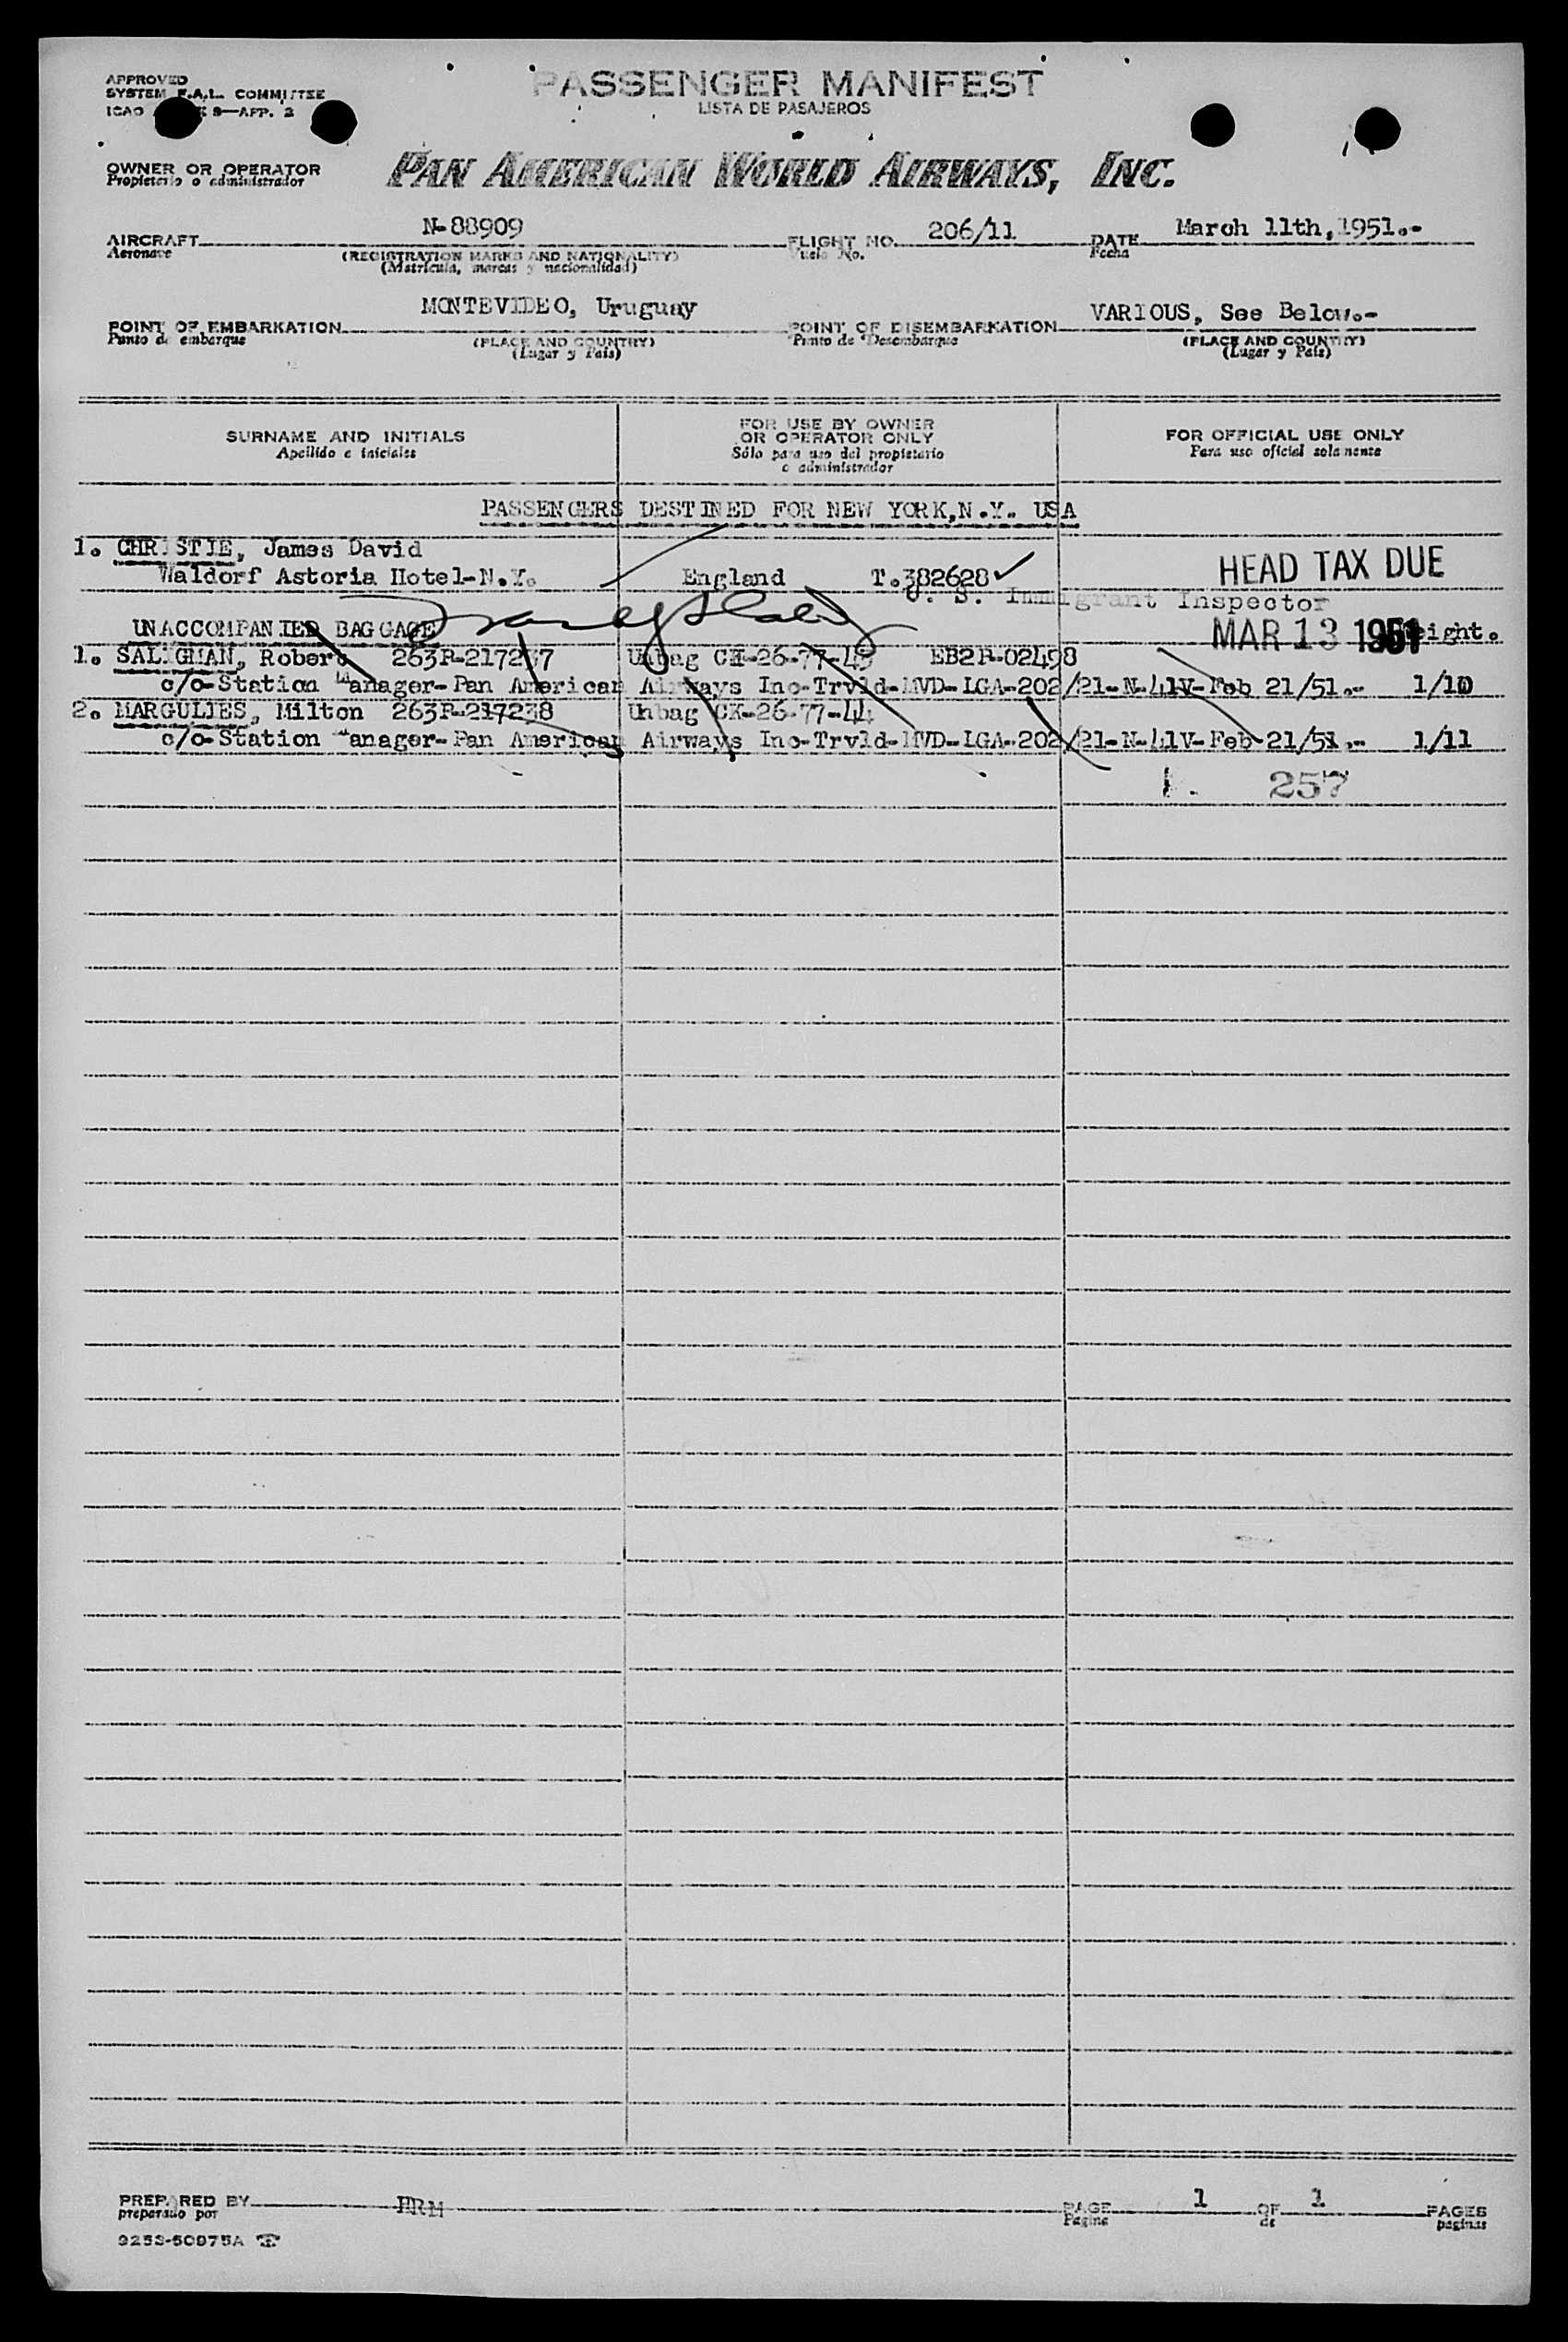 APPROVED
SYSTEM F.A.L. COMMITTEE
ICAO 9—APP. 2
PASSENGER MANIFEST
LISTA DE PASAJEROS
OWNER OR OPERATOR
Propietario o administrador
PAN AMERICAN WORLD AIRWAYS, INC.
AIRCRAFT N-88909 FLIGHT NO. 206/11 DATE March 11th, 1951.-
Aeronave (REGISTRATION MARKS AND NATIONALITY) Vuelo No. Fecha
(Matrícula, marcas y nacionalidad)
POINT OF EMBARKATION MONTEVIDEO, Uruguay POINT OF DISEMBARKATION VARIOUS, See Below.-
Punto de embarque (PLACE AND COUNTRY) Punto de Desembarque (PLACE AND COUNTRY)
(Lugar y País) (Lugar y País)
SURNAME AND INITIALS
Apellido e iniciales
FOR USE BY OWNER
OR OPERATOR ONLY
Sólo para uso del propietario
o administrador
FOR OFFICIAL USE ONLY
Para uso oficial solamente
PASSENGERS DESTINED FOR NEW YORK, N.Y. USA
1. CHRISTIE, James David
Waldorf Astoria Hotel-N.Y. England T.382628 ✓
HEAD TAX DUE
U. S. Immigrant Inspector
MAR 13 1951
UNACCOMPANIED BAGGAGE
1. SALIGMAN, Robert 263P-217237 Unbag CK-26-77-43 EB2P-02498
c/o-Station Manager-Pan American Airways Inc-Trvld-MVD-LGA-202/21-N-41V-Feb 21/51.- 1/10
2. MARGULIES, Milton 263P-217238 Unbag CK-26-77-44
c/o-Station Manager-Pan American Airways Inc-Trvld-MVD-LGA-202/21-N-41V-Feb-21/51.- 1/11
257
PREPARED BY HRM PAGE 1 OF 1 PAGES
preparado por Página de páginas
9253-50975A